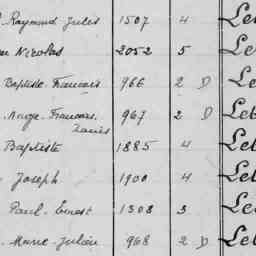 Raymond Jules 1507 4 Le
Nicolas 2052 5 Le
Baptiste Francois 966 2 D Le
Ange Francois 967 2 D Let
Louis
Baptiste 1885 4 Le
Joseph 1900 4 Le
Paul Ernest 1308 3 Le
Marie Julien 968 2 D Le